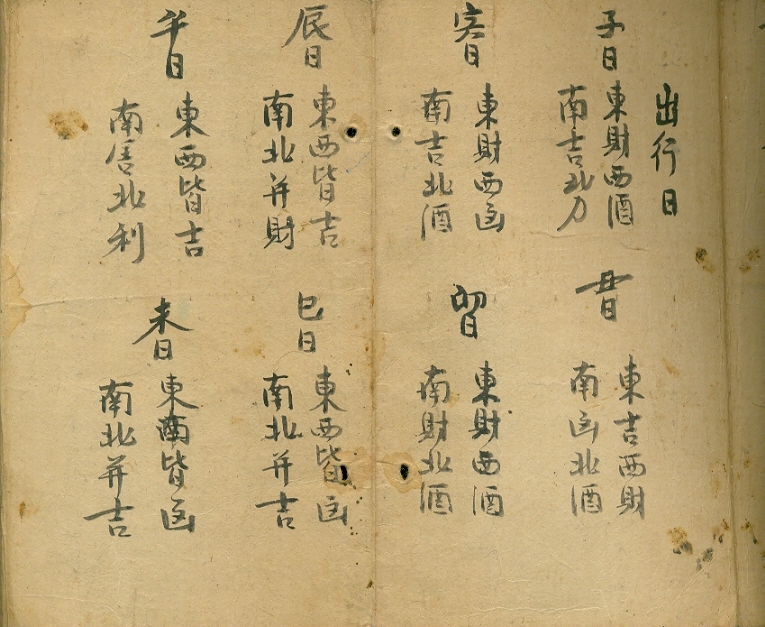 出行日
子日
東財西酒
南吉北刀
丑日
東吉西財
南凶北酒
寅日
東財西凶
南吉北酒
卯日
東財西酒
南財北酒
辰日
東西皆吉
南北并財
巳日
東西皆凶
南北并吉
午日
東西皆吉
南害北利
未日
東南皆凶
南北并吉